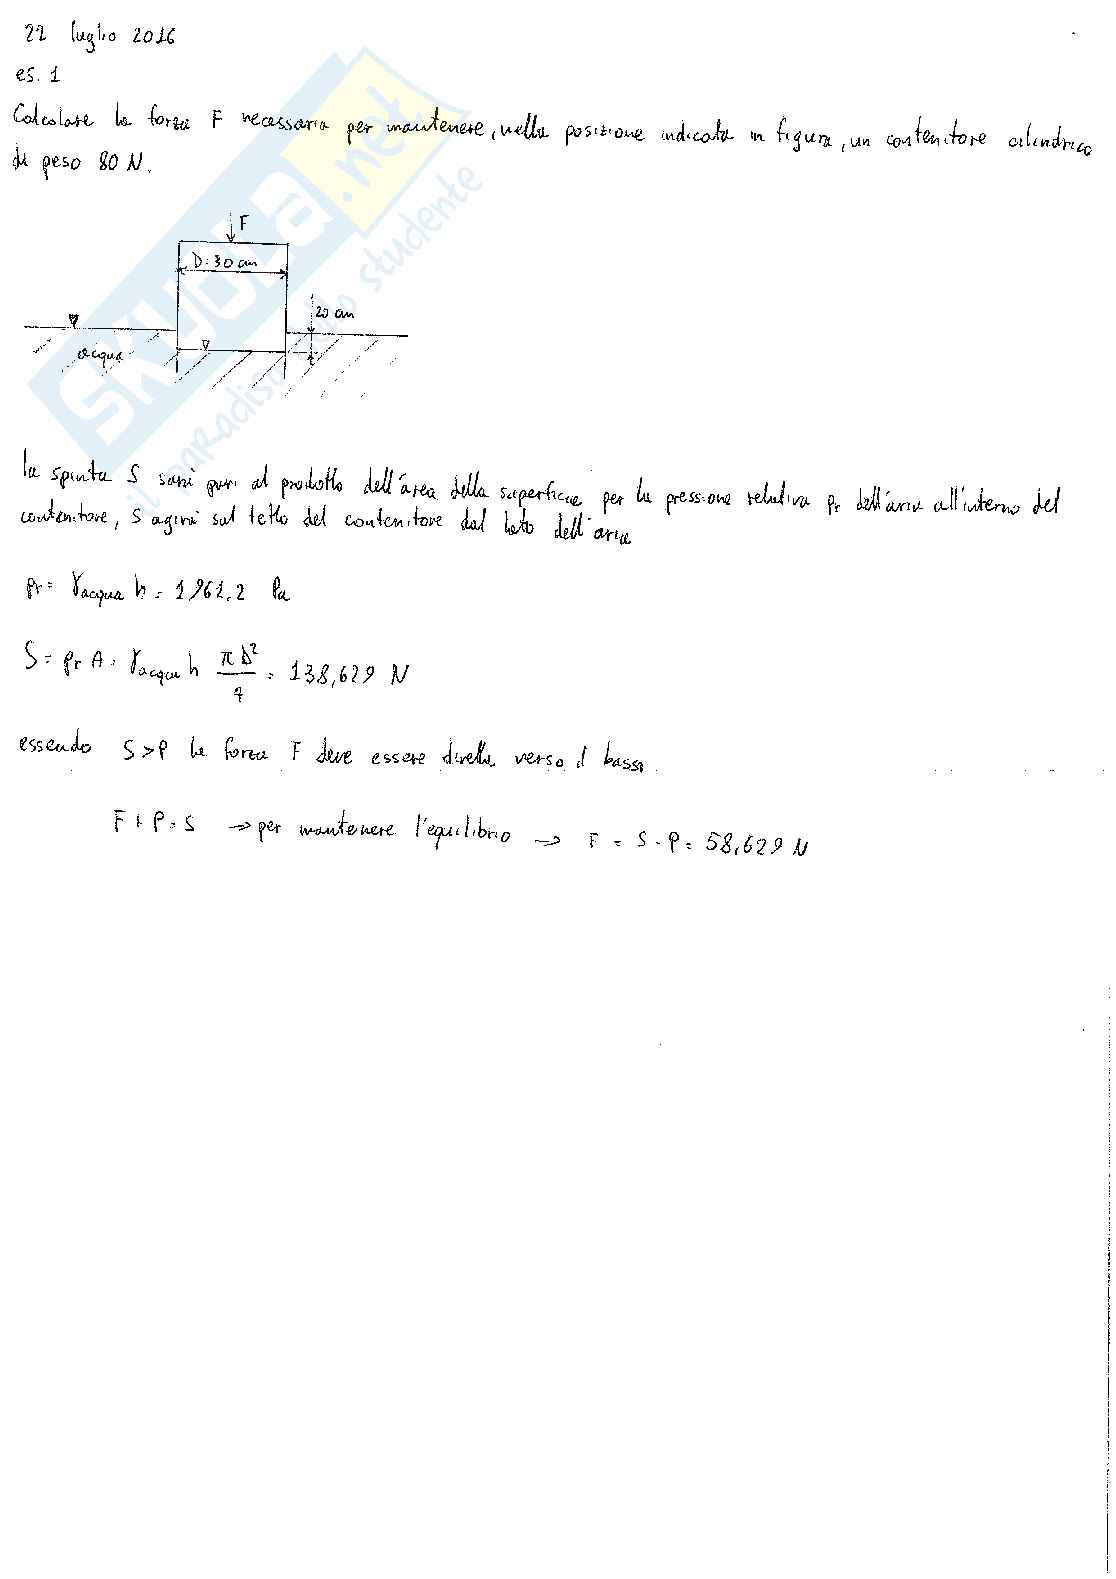 22 luglio 2016
es. 1
Calcolare la forza F necessaria per mantenere, nella posizione indicata in figura, un contenitore cilindrico
di peso 80 N.
F
D = 30 cm
20 cm
acqua
SKUOLA.net
il paradiso dello studente
la spinta S sarà pari al prodotto dell'area della superficie per la pressione relativa pr dell'aria all'interno del
contenitore, S agirà sul tetto del contenitore dal lato dell'aria
pr = γacqua h = 1961,2 Pa
S = pr A = γacqua h πD²/4 = 138,629 N
essendo S>P la forza F deve essere diretta verso il basso.
F + P = S → per mantenere l'equilibrio → F = S - P = 58,629 N